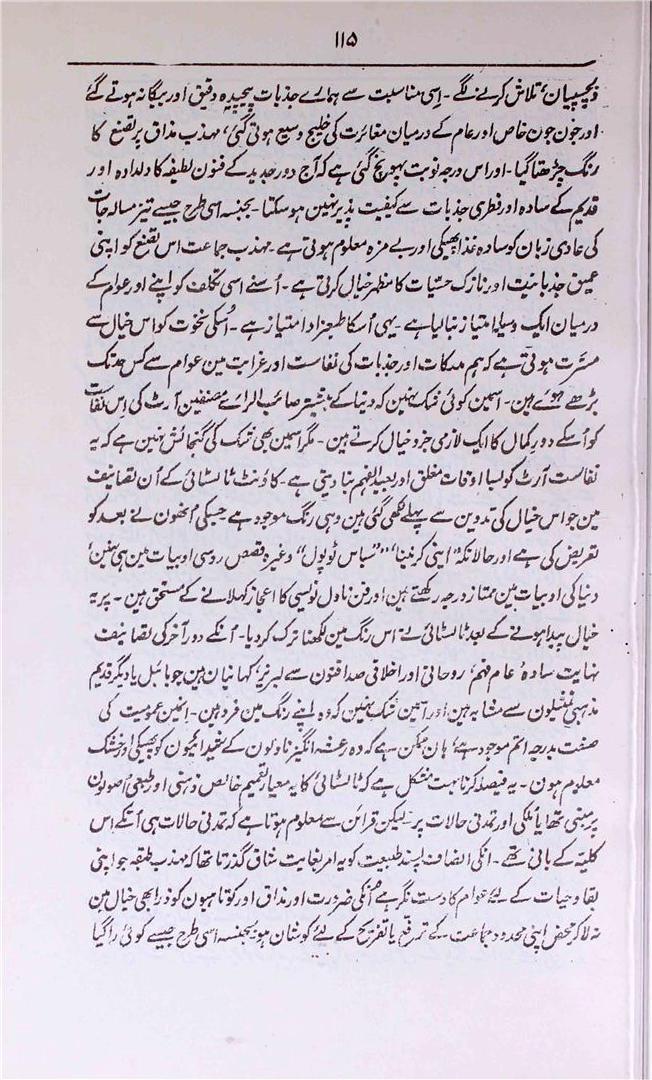 ۱۱۵
دلچسپیان تلاش کرنے لگے۔ اِسی مناسبت سے ہمارے جذبات پیچیدہ دقیق اور بیگانہ ہوتے گئے
اور جون جون خاص اور عام کے درمیان مغائرت کی خلیج وسیع ہوتی گئی، مہذب مذاق پر تصنع کا
رنگ چڑھتا گیا۔ اور اس درجہ نوبت پہونچ گئی ہے کہ آج دور جدید کے فنون لطیفہ کا دلدادہ دور
قدیم کے سادہ اور فطری جذبات سے کیفیت پذیر نہین ہو سکتا۔ بجنسہ اسی طرح جیسے تیز مسالہ جات
کی عادی زبان کو سادہ غذا پھیکی اور بے مزہ معلوم ہوتی ہے۔ مہذب جماعت اس تصنع کو اپنی
عمیق جذبانیت اور نازک حسّیات کا مظہر خیال کرتی ہے۔ اُسنے اسی تکلف کو اپنے اور عوام کے
درمیان ایک وسیلہ امتیاز بنا لیا ہے۔ یہی اُسکا طبعزاد امتیاز ہے۔ اُسکی نخوت کو اس خیال سے
مسرّت ہوتی ہے کہ ہم مدرکات اور جذبات کی نفاست اور غرابت مین عوام سے کس حد تک
بڑھے ہوئے ہین۔ اسمین کوئی شک نہین کہ دنیا کے بیشتر صائب الرائے مصنفین آرٹ کی اِس نفاست
کو اُسکے دور کمال کا ایک لازمی جزو خیال کرتے ہین۔ مگر اسمین بھی شک کی گنجائش نہین ہے کہ یہ
نفاست آرٹ کو بسا اوقات مغلق اور بعید الفہم بنا دیتی ہے۔ کاؤنٹ ٹالسٹائی کے اُن تصانیف
مین جو اس خیال کی تدوین سے پہلے لکھی گئی ہین وہی رنگ موجود ہے جسکی اُنھون نے بعد کو
تعریض کی ہے اور حالانکہ "اینی کرنینا" "سباس ٹوپول" وغیرہ قصص روسی ادبیات مین ہی نہین،
دنیا کی ادبیات مین ممتاز درجہ رکھتے ہین اور فن ناول نویسی کا اعجاز کہلانے کے مستحق ہین۔ پر یہ
خیال پیدا ہونے کے بعد ٹالسٹائی نے اس رنگ مین لکھنا ترک کر دیا۔ اُنکے دور آخر کی تصانیف
نہایت سادہ، عام فہم، روحانی اور اخلاقی صداقتون سے لبریز، کہانیان ہین جو بائبل یا دیگر قدیم
مذہبی تمثیلون سے مشابہ ہین اور اسمین شک نہین کہ وہ اپنے رنگ مین فرد ہین۔ انمین عمومیت کی
صفت بدرجہ اتم موجود ہے، ہان ممکن ہے کہ وہ رعشہ انگیز ناولون کے شیدائیون کو پھیکی اور خشک
معلوم ہون۔ یہ فیصلہ کرنا بہت مشکل ہے کہ ٹالسٹائی کا یہ معیار تعمیم خالص ذہنی اور طبعی اُصولون
پر مبنی تھا یا مُلکی اور تمدنی حالات پر۔ لیکن قرائن سے معلوم ہوتا ہے کہ تمدنی حالات ہی اُنکے اس
کلیّہ کے بانی تھے۔ انکی انصاف پسند طبیعت کو یہ امر بغایت شاق گذرتا تھا کہ مہذب طبقہ جو اپنی
بقاء حیات کے لیے عوام کا دست نگر ہے اُنکی ضرورت اور مذاق اور کوتاہیون کو ذرا بھی خیال مین
نہ لا کر محض اپنی محدود جماعت کے ترفع یا تفریح کے لیے کوشان ہو، بجنسہ اسی طرح جیسے کوئی راگیا